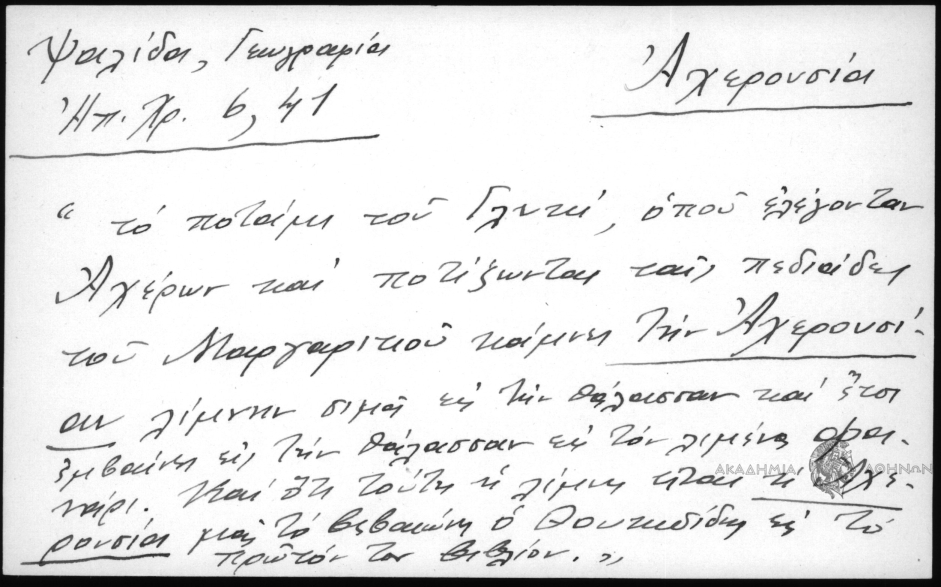 Ψαλίδα, Γεωγραφία
Ἠπ. Χρ. 6, 41
Ἀχερουσία
“ τό ποτάμι τοῦ Γλυκύ, ὁποῦ ἐλέγονταν
Ἀχέρων καί ποτίζωντας ταῖς πεδιάδες
τοῦ Μαργαριτιοῦ κάμνει τήν Ἀχερουσί-
αν λίμνην σιμά εἰς τήν θάλασσαν καί ἔτσι
ἐμβαίνει εἰς τήν θάλασσαν εἰς τόν λιμένα Φαν-
νάρι. Καί ὅτι τούτη ἡ λίμνη εἶναι ἡ Ἀχε-
ρουσία μᾶς τό βεβαιώνει ὁ Θουκυδίδης εἰς τό
πρῶτόν του βιβλίον. ”
ΑΚΑΔΗΜΙΑ ΑΘΗΝΩΝ